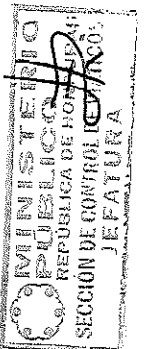 MINISTERIO
PUBLICO
REPÚBLICA DE
SECCIÓN DE CONTROL
JEFATURA